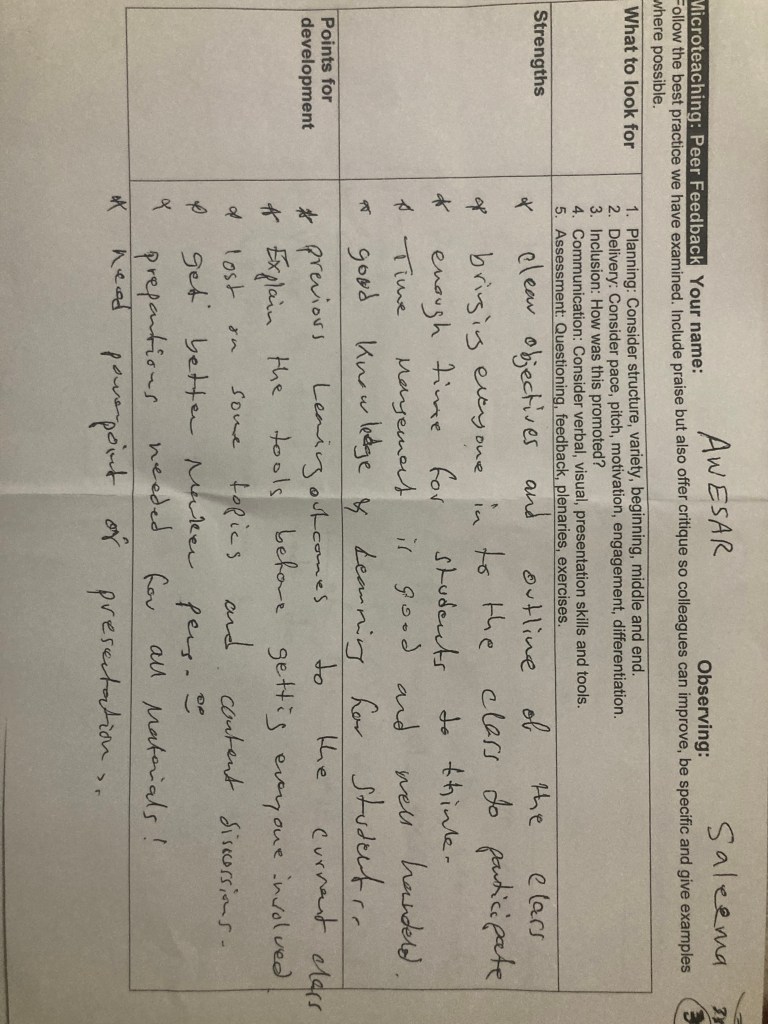 Microteaching: Peer Feedback Your name: AWESAR Observing: Saleema
Follow the best practice we have examined. Include praise but also offer critique so colleagues can improve, be specific and give examples
where possible.
What to look for
1. Planning: Consider structure, variety, beginning, middle and end.
2. Delivery: Consider pace, pitch, motivation, engagement, differentiation.
3. Inclusion: How was this promoted?
4. Communication: Consider verbal, visual, presentation skills and tools.
5. Assessment: Questioning, feedback, plenaries, exercises.
Strengths
* clear objectives and outline of the class
* bringing everyone in to the class to participate
* enough time for students to think.
* Time management is good and well handeld.
* good knowledge & Learning for student..
Points for
development
* previous Learning outcomes to the current class
* Explain the tools before getting everyone involved
* lost on some topics and content discussions.
* get better marker pens.
* prepartions needed for all materials!
* need powerpoint or presentation..